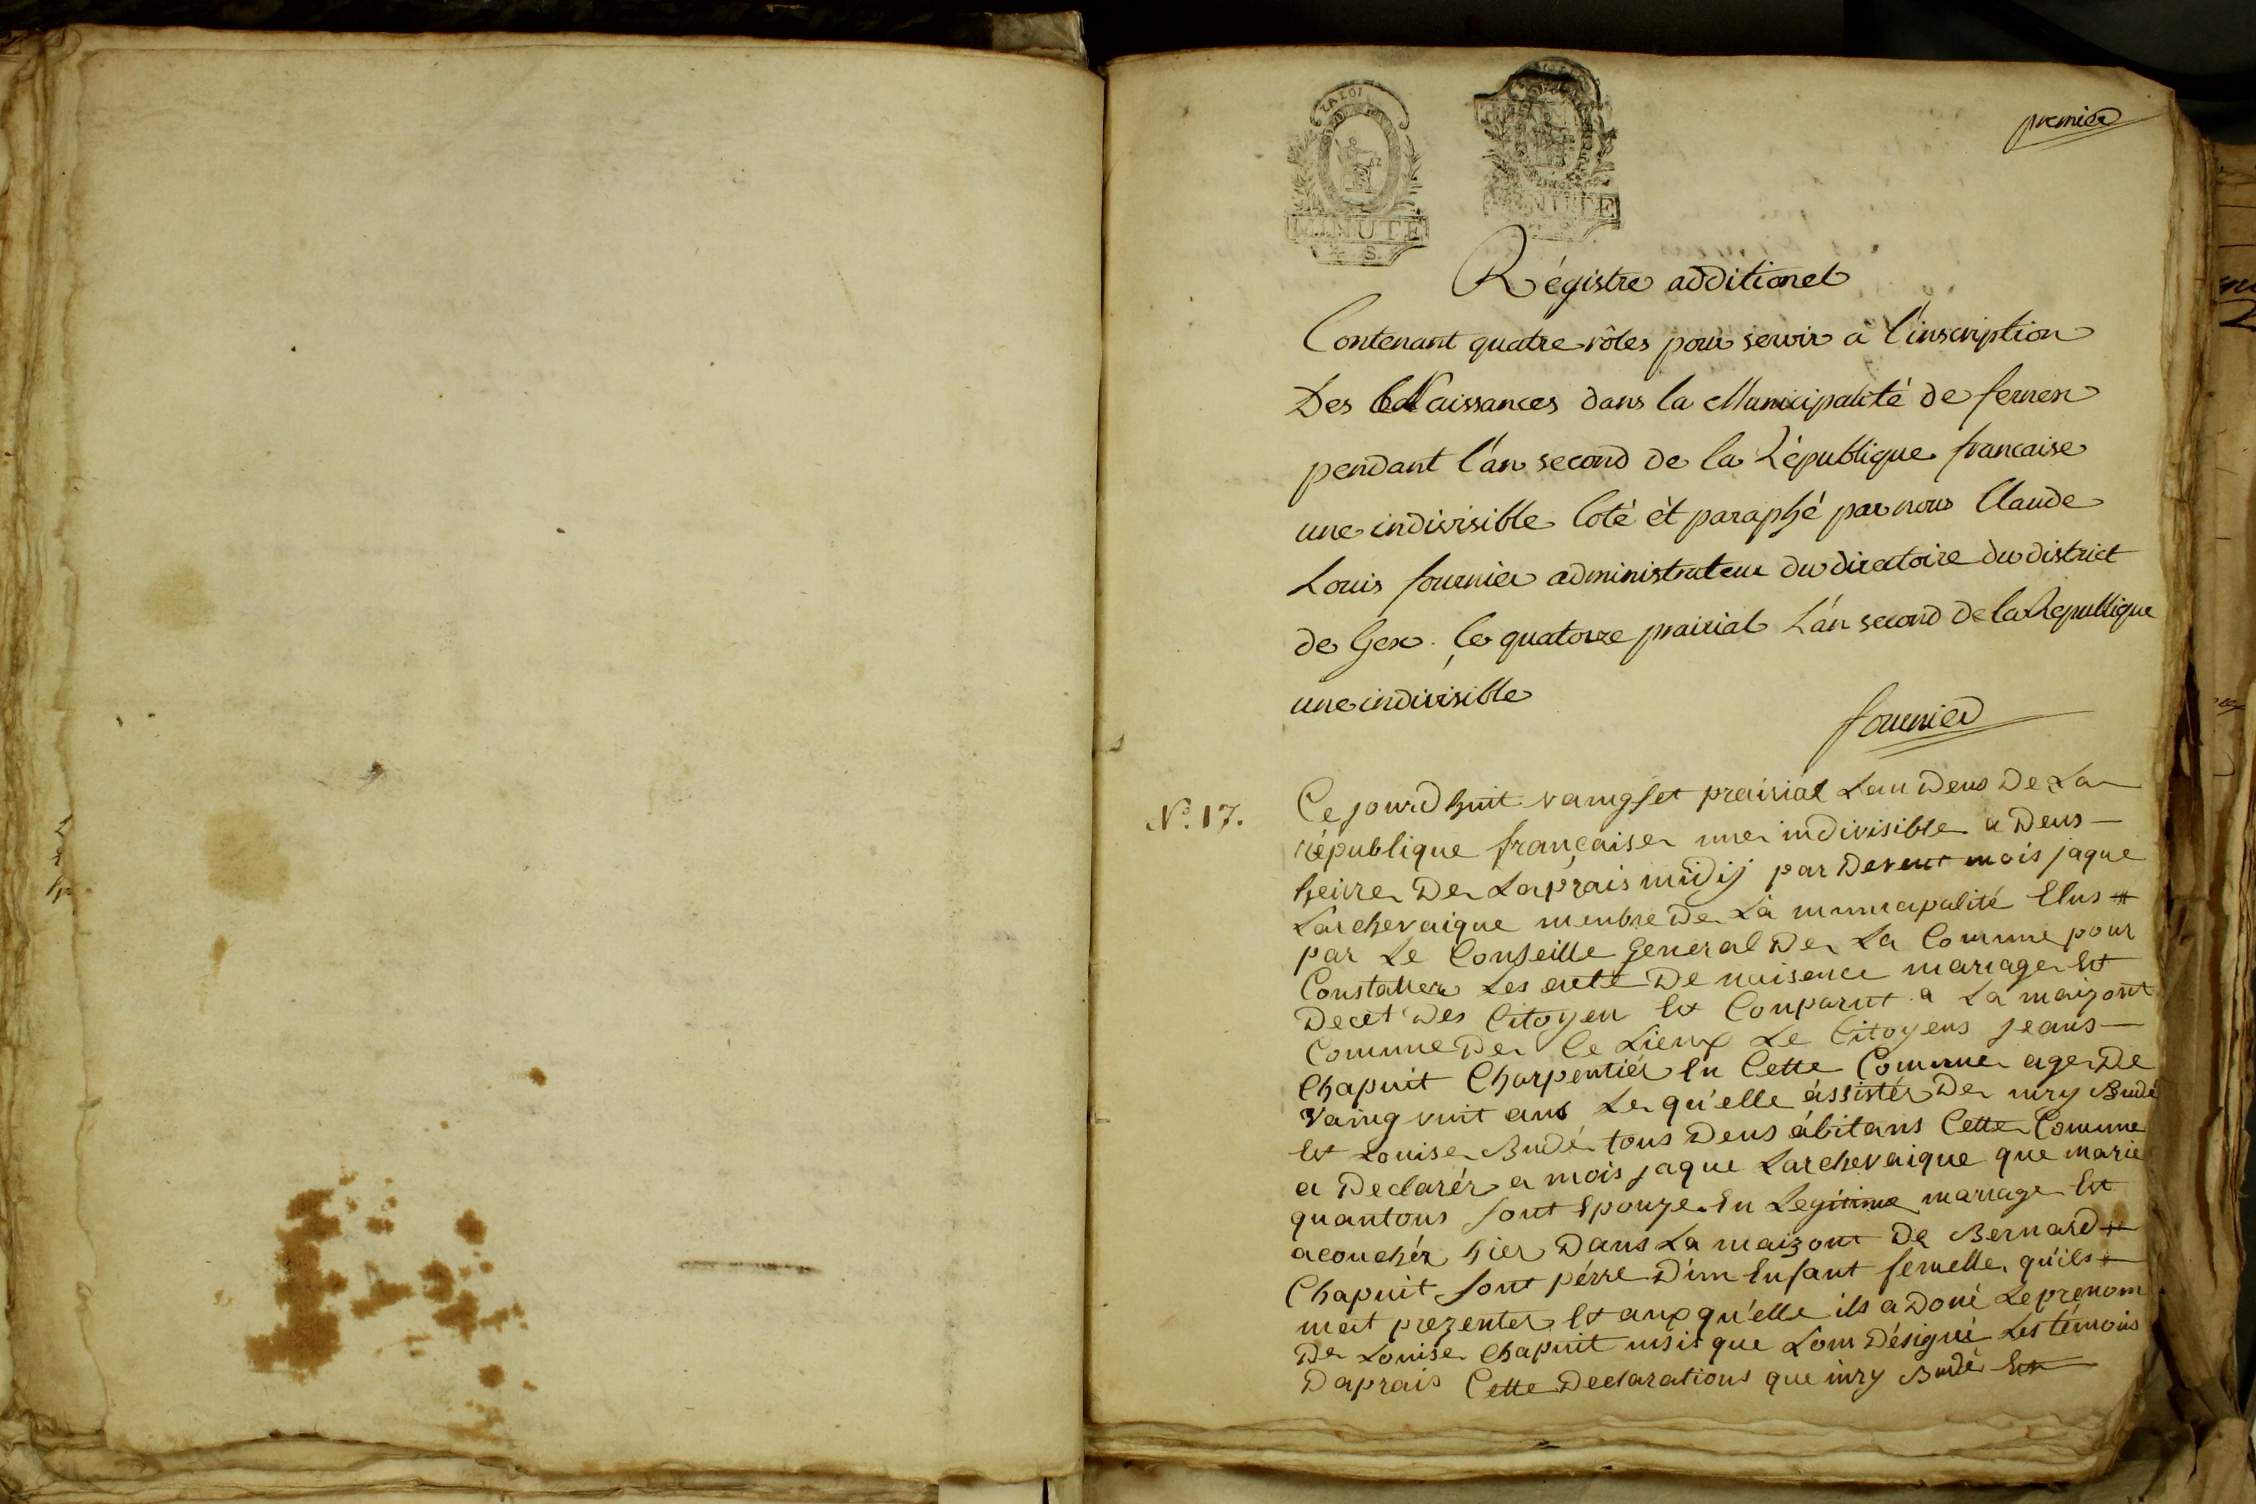 premier
LA LOI
MINUTE
4 S.
MINUTE
Régistre additionel
Contenant quatre rôles pour servir a l'inscription
Des Naissances dans la Municipalité de fernex
pendant l'an second de la République francaise
une indivisible Coté èt paraphé par nous Claude
Louis fournier administrateur du directoire du district
de Gex. le quatorze prairial L'an second de la Republique
une indivisible
fournier
N.º 17.
Ce jourdhuit vaingset prairial Lan Deus De La
république française une indivisible a Deus
heure De Laprais midij par Devent mois jaque
Larchevaique menbre De La municipalité Elus
par Le Conseille General De La Commune pour
Constatter Les acte De naisence mariage Et
Decet Des Citoyen Et Conparut a La maizont
Commune De Ce Lieux Le Citoyens jeans
Chapuit Charpentiér En Cette Commune age De
vaing vuit ans Le qu'elle àssistér De inry Budé
Et Louise Budé tous Deus àbitans Cette Commune
a Declarér a mois jaque Larchevaique que marie
quantous sont Epouze En Legitime mariage Et
acouchér hier Dans La maizont De Bernard
Chapuit sont pérre D'un Enfant femelle, qu'ils
mat prezenter Et aux qu'elle ils a Doné Le prenom
De Louise Chapuit insit que Lom Désigné Les témois
Daprais Cette Declarations que inry Budé Et